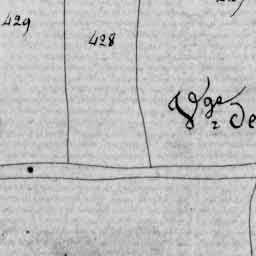 429
428
Vge De
2